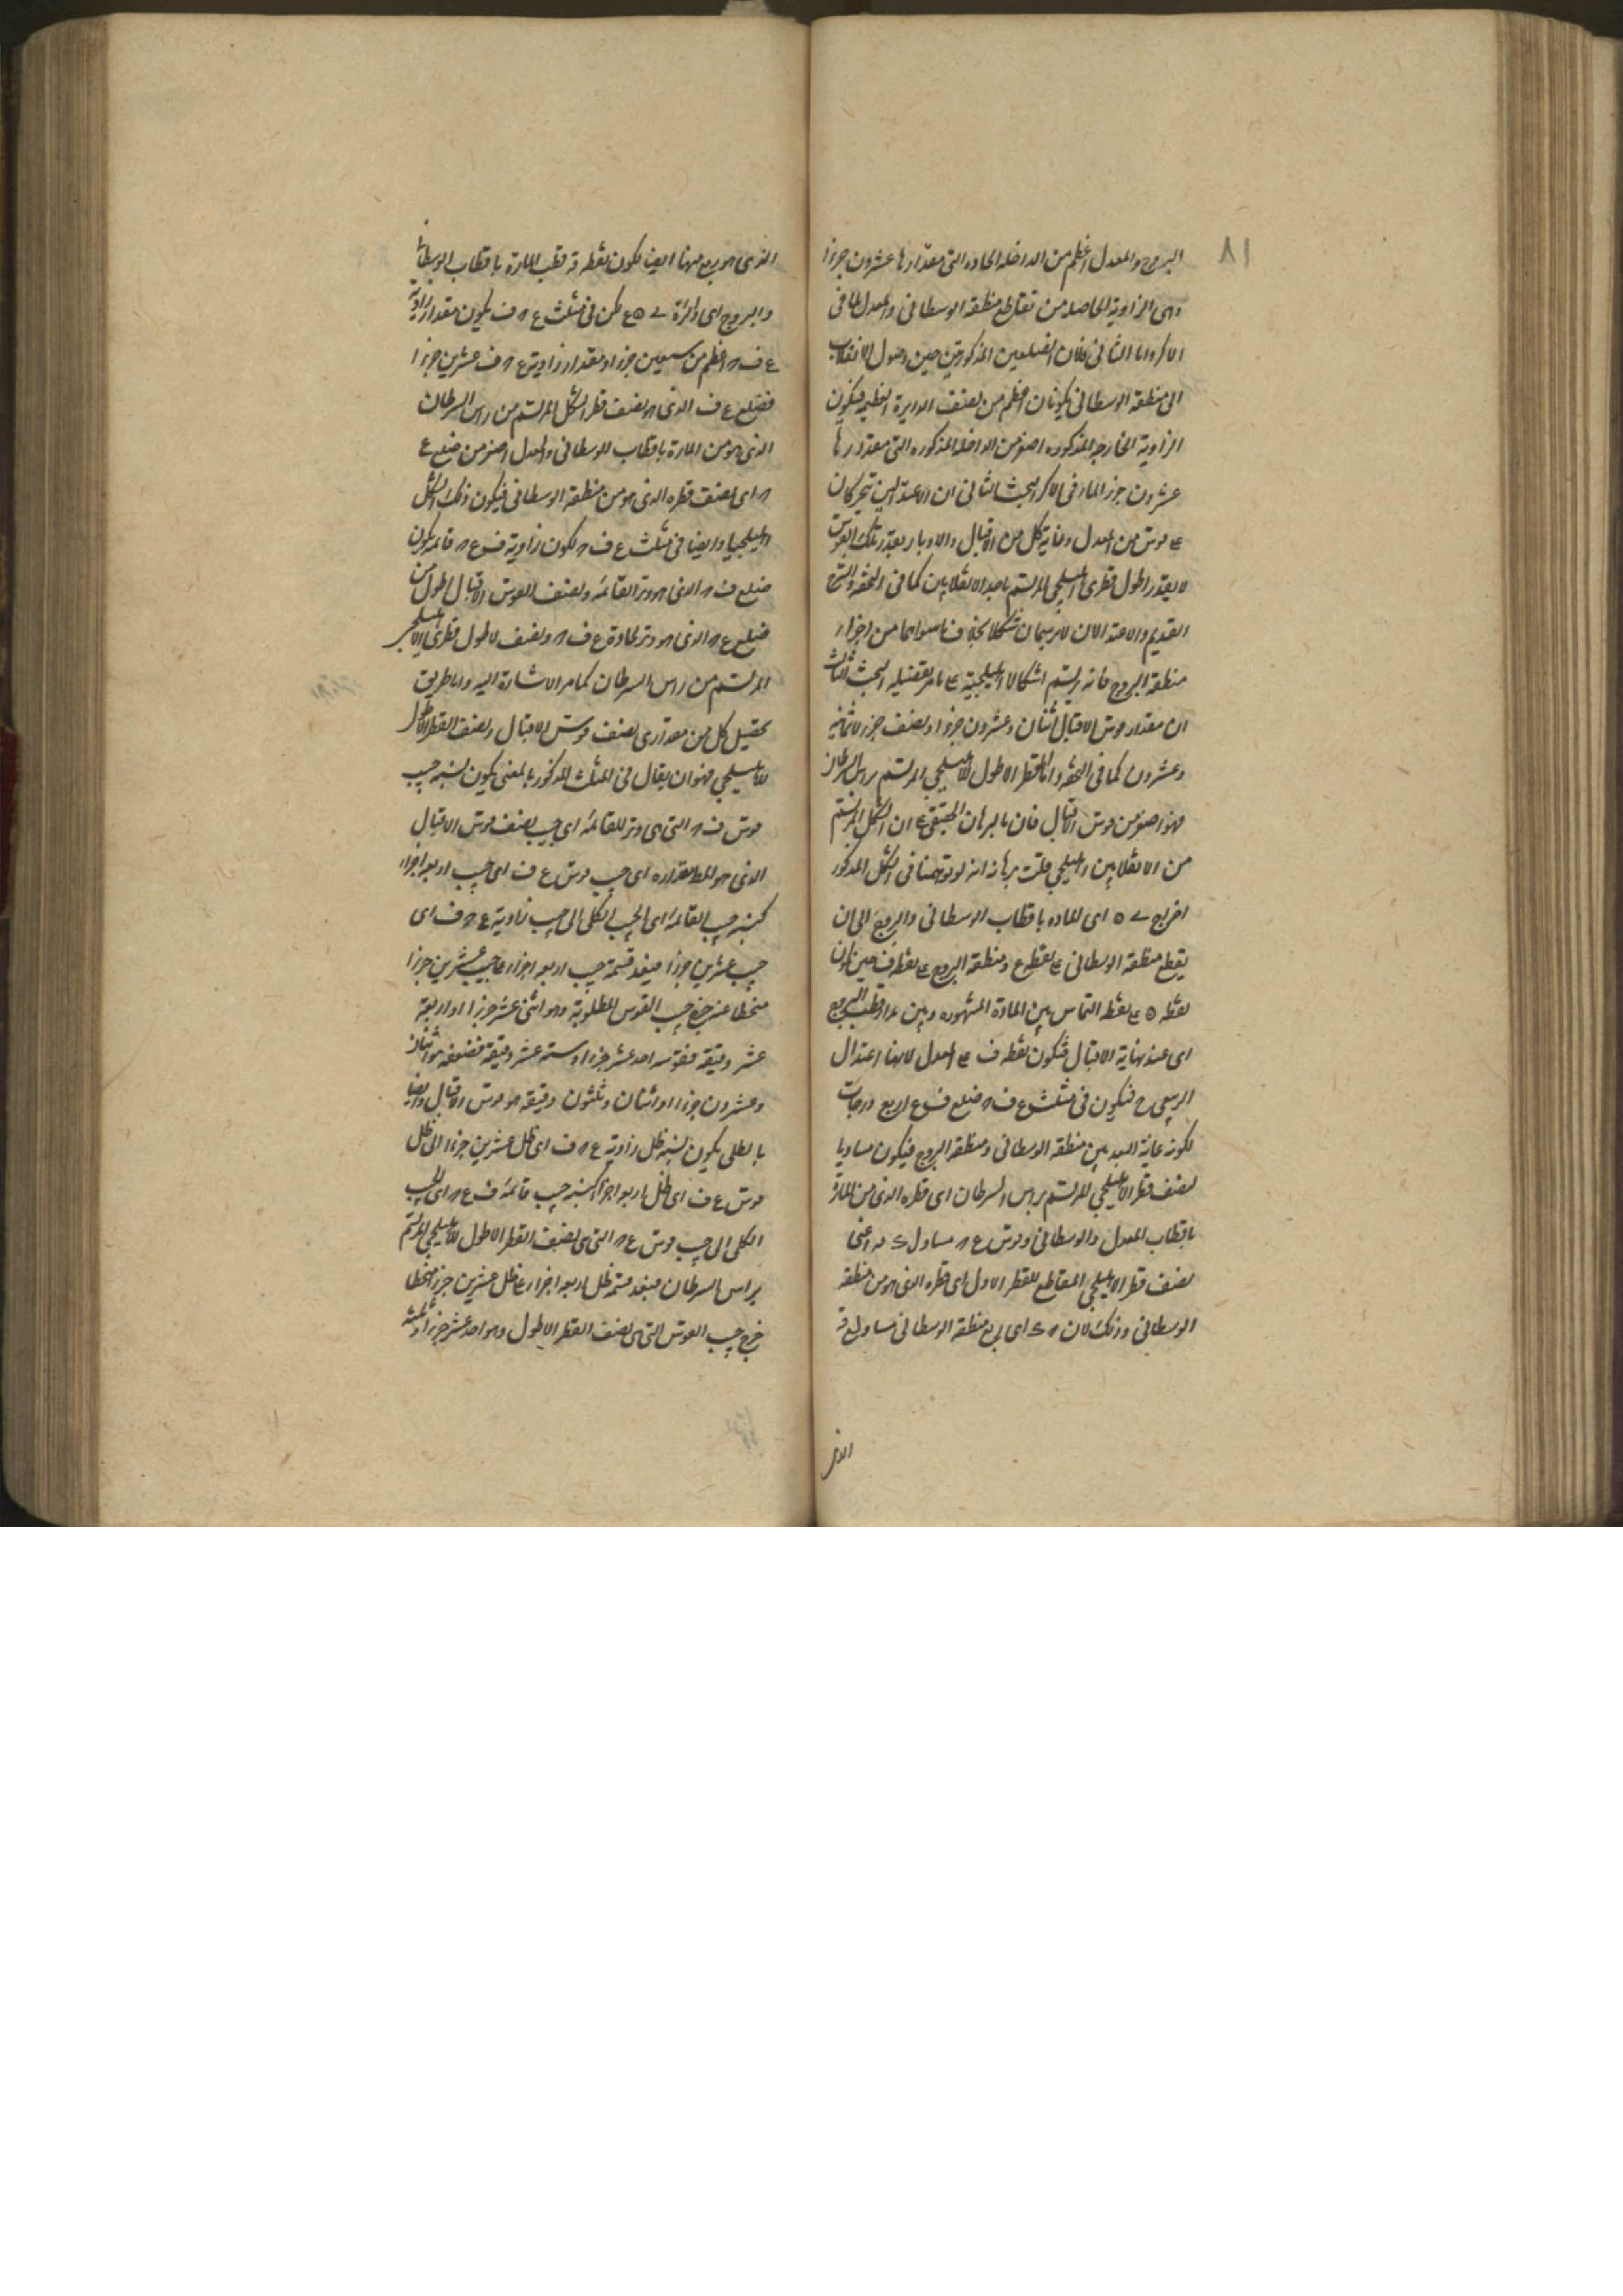 ٨١
البروج والمعدل اعظم من الداخلة الحاده التى مقدارها عشرون جزءا
وهى الزاوية الحاصله من تقاطع منطقة الوسطانى والمعدل لما فى
الاكر واما الثانى فلان الضلعين المذكورتين حين وصول الانقلاب
الى منطقة الوسطانى يكونان اعظم من نصف الدايرة العظيمه فيكون
الزاوية الخارجه المذكوره اصغر من الداخلة المذكوره التى مقدارها
عشرون جزء لما مر فى الاكر البحث الثانى ان الاعتدالين يتحركان
على قوس من المعدل وغاية كل من الاقبال والادبار بقدر تلك القوس
لا بقدر اطول قطرى الاهليلجى المرتسم باحد الانقلابين كما فى التحفه والشرح
القديم والاعتدالان لا يرسمان شكلا بخلاف ما سواهما من اجزاء
منطقة البروج فانه يرتسم اشكالا اهليلجية على ما مر تفصيله البحث الثالث
ان مقدار قوس الاقبال اثنان وعشرون جزءا ونصف جزء لا ثمانيه
وعشرون كما فى التحفه واما القطر الاطول للاهليلجى المرتسم براس السرطان
فهو اصغر من قوس الاقبال فان ما البرهان الحقيقى على ان الشكل المرتسم
من الانقلابين اهليلجى قلت برهانه انه لو توهمنا فى الشكل المذكور
اخراج ے ه اى الماره باقطاب الوسطانى والبروج الى ان
يقطع منطقة الوسطانى على نقطة ع ومنطقة البروج على نقطة ف حين كون
نقطة ه على نقطة التماس بين المادة المشهوره وبين مدار قطب البروج
اى عند نهاية الاقبال فتكون نقطه ف على المعدل لانها اعتدال
الربيعى ح فيكون فى مثلث ع ف م ضلع ف ع اربع درجات
لكونه غاية البعد بين منطقة الوسطانى ومنطقة البروج فيكون مساويا
لنصف قطر الاهليلجى المرتسم براس السرطان اى قطره الذى من المارة
باقطاب المعدل والوسطانى وقوس ع م مساو ل ى اعنى
نصف قطر الاهليلجى المقاطع للقطر الاول اى قطره الذى هو من منطقة
الوسطانى وذلك لان اى ربع منطقة الوسطانى مساو ل ع
الذى
الذى هو ربع منها ايضا لكون نقطه قطب المارة باقطاب الوسطانى
والبروج اى دائرة ے ه ع لكن فى مثلث ع م ف يكون مقدار زاوية
ع ف م اعظم من سبعين جزءا ومقدار زاوية ع م ف عشرين جزءا
فضلع ع ف الذى هو نصف قطر الشكل المرتسم من راس السرطان
الذى هو من المارة باقطاب الوسطانى والمعدل اصغر من ضلع ع
م اى نصف قطره الذى هو من منطقة الوسطانى فيكون ذلك الشكل
اهليلجيا وايضا فى مثلث ع ف م لكون زاوية ف ع م قائمه يكون
ضلع ف م الذى هو وتر القائمه ونصف القوس الاقبال اطول من
ضلع ع م الذى هو وتر لحادة ع ف م ونصف لاطول قطرى الاهليلجى
المرتسم من راس السرطان كما مر الاشارة اليه واما طريق
تحصيل كل من مقدارى نصف قوس الاقبال ونصف القطر الاطول
للاهليلجى فهو ان يقال فى المثلث المذكور بالمغنى يكون نسبة جيب
قوس ف م التى هى وتر للقائمه اى جيب نصف قوس الاقبال
الذى هو المط مقداره اى جيب قوس ع ف اى جيب اربعه اجزاء
كنسبه جيب القائمه اى الجيب الكلى الى جيب زاوية ع م ف اى
جيب عشرين جزءا فبعد قسمة جيب اربعه اجزاء على جيب عشرين جزءا
منحطا عنه خرج جيب القوس المطلوبة وهو اثنى عشر جزءا واربعة
عشر دقيقه فقوسه احد عشر جزءا وسته عشر دقيقة فضعفه هو اثنان
وعشرون جزءا واثنان وثلثون دقيقه هو قوس الاقبال وايضا
بالظلى يكون نسبة ظل زاوية ع م ف اى ظل عشرين جزءا الى ظل
قوس ع ف اى ظل اربعه اجزاء كنسبه جيب قائمه ف ع م اى الجيب
الكلى الى جيب قوس ع م التى هى نصف القطر الاطول للاهليلجى المرتسم
براس السرطان فبعد قسمة ظل اربعه اجزاء على ظل عشرين جزءا منحطا
خرج جيب القوس التى هى نصف القطر الاطول وهو احد عشر جزءا وثلثه